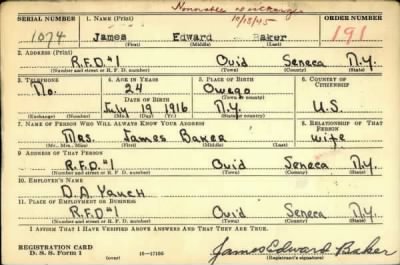 Honorable discharge
10/18/45
SERIAL NUMBER 1. NAME (Print) ORDER NUMBER
1074 James Edward Baker 191
(First) (Middle) (Last)
2. ADDRESS (Print)
R.F.D.#1 Ovid Seneca N.Y.
(Number and street or R. F. D. number) (Town) (County) (State)
3. TELEPHONE 4. AGE IN YEARS 5. PLACE OF BIRTH 6. COUNTRY OF CITIZENSHIP
No. 24 Owego
DATE OF BIRTH (Town or county)
July 19 1916 N.Y. U.S.
(Exchange) (Number) (Mo.) (Day) (Yr.) (State or country)
7. NAME OF PERSON WHO WILL ALWAYS KNOW YOUR ADDRESS 8. RELATIONSHIP OF THAT PERSON
Mrs. James Baker wife
(Mr., Mrs., Miss) (First) (Middle) (Last)
9. ADDRESS OF THAT PERSON
R.F.D.#1 Ovid Seneca N.Y.
(Number and street or R. F. D. number) (Town) (County) (State)
10. EMPLOYER'S NAME
D.A. Yauch
11. PLACE OF EMPLOYMENT OR BUSINESS
R.F.D.#1 Ovid Seneca N.Y.
(Number and street or R. F. D. number) (Town) (County) (State)
I AFFIRM THAT I HAVE VERIFIED ABOVE ANSWERS AND THAT THEY ARE TRUE.
REGISTRATION CARD
D. S. S. Form 1 (over) 16—17105 James Edward Baker
(Registrant's signature)